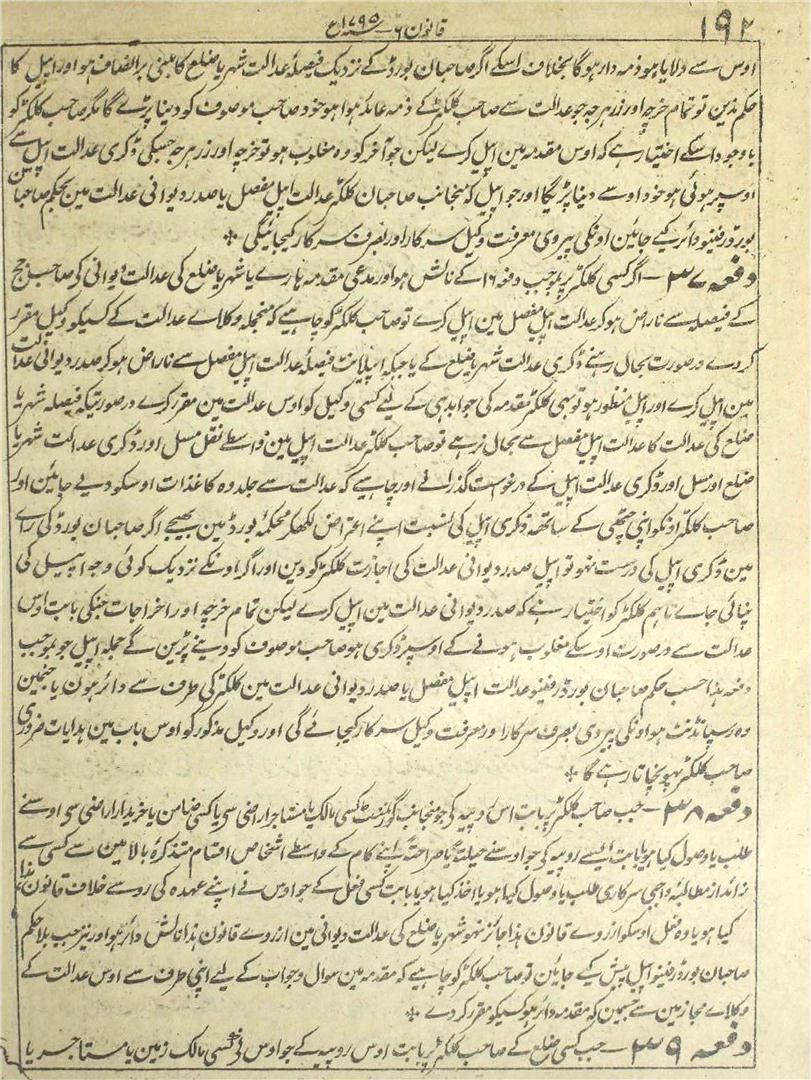 ۱۹۲
قانون ۶ سنہ ۱۷۹۵ع
اوس سے دلایا ہو ذمہ دار ہوگا بخلاف اسکے اگر صاحبان بورڈ کے نزدیک فیصلہ عدالت شہر یا ضلع کا مبنی برانصاف ہو اور اپیل کا
حکم ندین تو تمام خرچہ اور زر ہرجہ جو عدالت سے صاحب کلکٹر کے ذمہ عائد ہوا ہو خود صاحب موصوف کو دینا پڑے گا مگر صاحب کلکٹر کو
باوجود اسکے اختیار ہے کہ اوس مقدمہ مین اپیل کرے لیکن جو آخر کو وہ مغلوب ہو تو خرچہ اور زر ہرجہ جسکی ڈگری عدالت اپیل سے
اوسپر ہوئی ہو خود اوسے دینا پڑیگا اور جو اپیل کہ منجانب صاحبان کلکٹر عدالت اپیل مفصل یا صدر دیوانی عدالت مین بحکم صاحبان
بورڈ رفینو دائر کیے جائین اونکی پیروی معرفت وکیل سرکار اور بصرف سرکار کیجائیگی *
دفعہ ۳۷ — اگر کسی کلکٹر پر بموجب دفعہ ۱۶ کے نالش ہو اور مدعی مقدمہ ہارے یا شہر یا ضلع کی عدالت دیوانی کو صاحب جج
کے فیصلہ سے ناراض ہو کر عدالت اپیل مفصل مین اپیل کرے تو صاحب کلکٹر کو چاہیے کہ منجملہ وکلاے عدالت کے کسیکو وکیل مقرر
کردے درصورت بحال رہنے ڈگری عدالت شہر یا ضلع کے یا جبکہ اپیلانٹ فیصلہ عدالت اپیل مفصل سے ناراض ہو کر صدر دیوانی عدالت
مین اپیل کرے اور اپیل منظور ہو تو بھی کلکٹر مقدمہ کی جوابدہی کے لیے کسی وکیل کو اوس عدالت مین مقرر کرے درصورتیکہ فیصلہ شہر یا
ضلع کی عدالت کا عدالت اپیل مفصل سے بحال نرہے تو صاحب کلکٹر عدالت اپیل مین واسطے نقل مسل اور ڈگری عدالت شہر یا
ضلع اور مسل اور ڈگری عدالت اپیل کے درخواست گذرانے اور چاہیے کہ عدالت سے جلد وہ کاغذات اوسکو دیے جائین اور
صاحب کلکٹر اونکو اپنی چٹھی کے ساتھ ڈگری اپیل کی نسبت اپنے اعتراض لکھکر محکمہ بورڈ مین بھیجے اگر صاحبان بورڈ کی راے
مین ڈگری اپیل کی درست نہو تو اپیل صدر دیوانی عدالت کی اجازت کلکٹر کو دین اور اگر اونکے نزدیک کوئی وجہ اپیل کی
نپائی جاے تاہم کلکٹر کو اختیار ہے کہ صدر دیوانی عدالت مین اپیل کرے لیکن تمام خرچہ اور اخراجات جنکی بابت اوس
عدالت سے درصورت اوسکے مغلوب ہونے کے اوسپر ڈگری ہو صاحب موصوف کو دینے پڑین گے جملہ اپیل جو بموجب
دفعہ ہذا حسب حکم صاحبان بورڈ رفینو عدالت اپیل مفصل یا صدر دیوانی عدالت مین کلکٹر کی طرف سے دائر ہون یا جنمین
وہ رسپانڈنٹ ہو اونکی پیروی بصرف سرکار اور معرفت وکیل سرکار کیجائے گی اور وکیل مذکور کو اوس باب مین ہدایات ضروری
صاحب کلکٹر پہونچاتا رہے گا *
دفعہ ۳۸ — جب صاحب کلکٹر پر بابت اس روپیہ کی جو منجانب گورنمنٹ کسی مالک یا مستاجر اراضی سے یا کسی ضامن یا خریدار اراضی سے اوسنے
طلب یا وصول کیا ہو یا بابت ایسے روپیہ کی جو اوسنے حیلۃً یا صراحۃً اپنے کام کے واسطے اشخاص اقسام متذکرہ بالا مین سے کسی سے
زائد از مطالبہ واجبی سرکاری طلب یا وصول کیا ہو یا اخذ کیا ہو یا بابت کسی فعل کے جو اوس نے اپنے عہدہ کی رو سے خلاف قانون ہذا
کیا ہو یا وہ فعل اوسکو ازروے قانون ہذا جائز نہو شہر یا ضلع کی عدالت دیوانی مین ازروے قانون ہذا نالش دائر ہو اور نیز جب بلا حکم
صاحبان بورڈ رفینو اپیل پیش کیے جائین تو صاحب کلکٹر کو چاہیے کہ مقدمہ مین سوال وجواب کے لیے اپنی طرف سے اوس عدالت کے
وکلاے مجاز مین سے جسمین کہ مقدمہ دائر ہو کسیکو مقرر کردے *
دفعہ ۳۹ — جب کسی ضلع کے صاحب کلکٹر پر بابت اوس روپیہ کے جو اوس نے کسی مالک زمین یا مستاجر یا